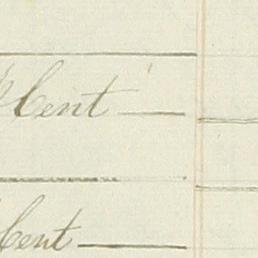 Cent
Cent